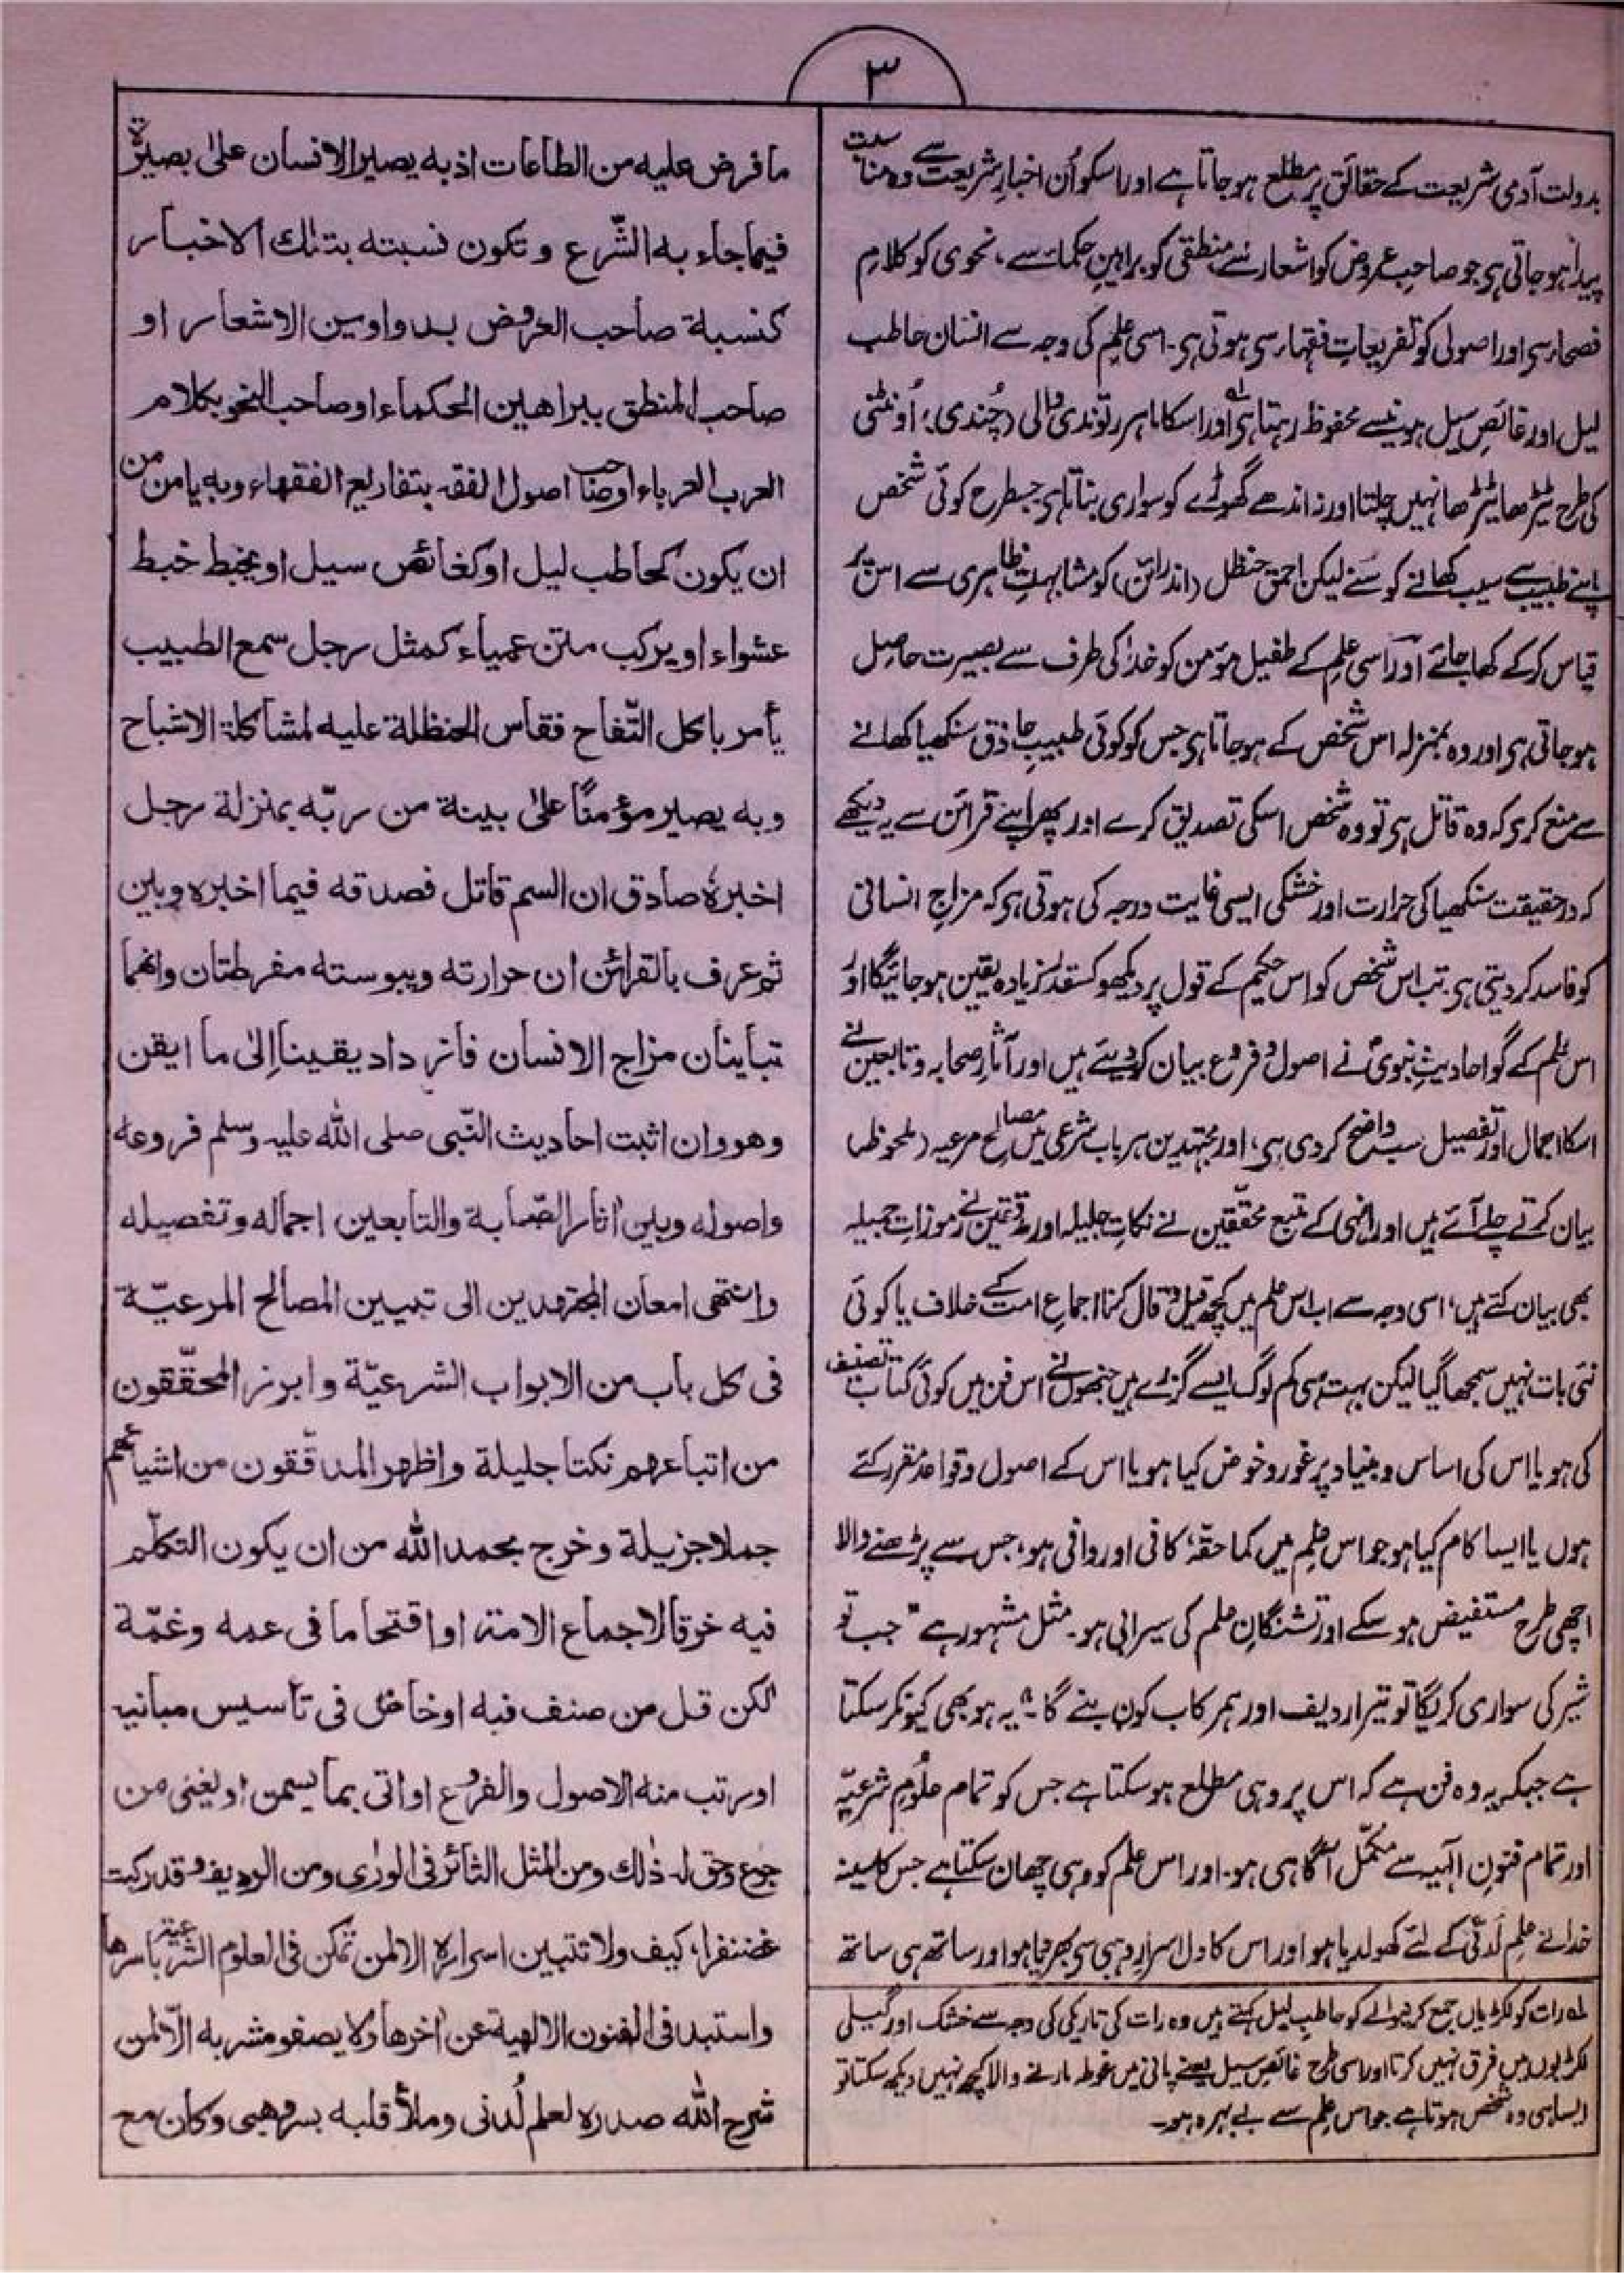 ۳
بدولت آدمی شریعت کے حقائق پر مطلع ہو جاتا ہے اور اسکو اُن اخبارِ شریعت سے وہ مناسبت
پیدا ہو جاتی ہی جو صاحبِ عروض کو اشعار سے منطقی کو براہینِ حکماء سے، نحوی کو کلامِ
فصحاء سی اور اصولی کو تفریعاتِ فقہاء سی ہوتی ہی۔ اسی علم کی وجہ سے انسان حاطب
لیل اور غائصِ سیل ہونیسے محفوظ رہتا ہی اور اسکا ماہر رتوندی والی (چُندی) اُونٹنی
کی طرح ٹیڑھا ٹیڑھا نہیں چلتا اور نہ اندھے گھوڑے کو سواری بناتا ہی جسطرح کوئی شخص
اپنے طبیب سے سیب کھانے کو سُنے لیکن احمق حنظل (اندرائن) کو مشابہتِ ظاہری سے اس پر
قیاس کرکے کھا جائے اور اسی علم کے طفیل مؤمن کو خدا کی طرف سے بصیرت حاصل
ہو جاتی ہی اور وہ بمنزلہ اس شخص کے ہو جاتا ہی جس کو کوئی طبیبِ حاذق سنکھیا کھانے
سے منع کری کہ وہ قاتل ہی تو وہ شخص اسکی تصدیق کرے اور پھر اپنے قرائن سے یہ دیکھے
کہ درحقیقت سنکھیا کی حرارت اور خشکی ایسی غایت درجہ کی ہوتی ہی کہ مزاجِ انسانی
کو فاسد کر دیتی ہی تب اس شخص کو اس حکیم کے قول پر دیکھو کسقدر زیادہ یقین ہو جائیگا اور
اس علم کے گو احادیثِ نبوی نے اصول و فروع بیان کر دیئے ہیں اور آثارِ صحابہ و تابعین نے
اسکا اجمال اور تفصیل سب واضح کر دی ہی، اور مجتہدین ہر باب شرعی میں مصالح مرعیہ (ملحوظہ)
بیان کرتے چلے آئے ہیں اور انہی کے متبع محققین نے نکاتِ جلیلہ اور مدققین نے رموزاتِ جمیلہ
بھی بیان کئے ہیں، اسی وجہ سے اب اس علم میں کچھ قیل و قال کرنا اجماعِ امت کے خلاف یا کوئی
نئی بات نہیں سمجھا گیا لیکن بہت ہی کم لوگ ایسے گزرے ہیں جنہوں نے اس فن میں کوئی کتاب تصنیف
کی ہو یا اس کی اساس و بنیاد پر غور و خوض کیا ہو یا اس کے اصول و قواعد مقرر کئے
ہوں یا ایسا کام کیا ہو جو اس علم میں کما حقہٗ کافی اور وافی ہو، جس سے پڑھنے والا
اچھی طرح مستفیض ہو سکے اور تشنگانِ علم کی سیرابی ہو۔ مثل مشہور ہے "جب تو
شیر کی سواری کریگا تو تیرا ردیف اور ہمرکاب کون بنے گا"۔ یہ ہو بھی کیونکر سکتا
ہے جبکہ یہ وہ فن ہے کہ اس پر وہی مطلع ہو سکتا ہے جس کو تمام علومِ شرعیّہ
اور تمام فنونِ الٰہیہ سے مکمّل آگاہی ہو۔ اور اس علم کو وہی چھان سکتا ہے جس کا سینہ
خدا نے علمِ لدنی کے لئے کھولدیا ہو اور اس کا دل اسرارِ وہبی سی بھر دیا ہو اور ساتھ ہی ساتھ
لہ رات کو لکڑیاں جمع کرنیوالے کو حاطبِ لیل کہتے ہیں وہ رات کی تاریکی کی وجہ سے خشک اور گیلی
لکڑیوں میں فرق نہیں کرتا اور اسی طرح غائص سیل یعنے پانی میں غوطہ مارنے والا کچھ نہیں دیکھ سکتا تو
ایسا ہی وہ شخص ہوتا ہے جو اس علم سے بے بہرہ ہو۔
ما فرض علیه من الطاعات اذ به یصیر الانسان علیٰ بصیرة
فیما جاء به الشّرع و تکون نسبته بتلك الاخبار
کنسبة صاحب العروض بدواوین الاشعار او
صاحب المنطق ببراهین الحکماء او صاحب النحو بکلام
العرب العرباء او صاحب اصول الفقه بتفاریع الفقهاء وبه یامن من
ان یکون کحاطب لیل او کغائص سیل او یخبط خبط
عشواء او یرکب متن عمیاء کمثل رجل سمع الطبیب
یأمر باکل التّفاح فقاس الحنظلة علیه لمشاکلة الاشباح
وبه یصیر مؤمنًا علیٰ بینة من ربّه بمنزلة رجل
اخبرهٗ صادق ان السم قاتل فصدقه فیما اخبره وبین
ثم عرف بالقرائن ان حرارته ویبوسته مفرطتان وانهما
تباینان مزاج الانسان فازداد یقینا اِلیٰ ما ایقن
وهو وان اثبت احادیث النّبی صلی الله علیه وسلم فروعه
واصوله وبین اٰثار الصّحابة والتابعین اجماله وتفصیله
وانتهی امعان المجتهدین الی تبیین المصالح المرعیّة
فی کل باب من الابواب الشرعیّة وابرز المحقّقون
من اتباعهم نکتا جلیلة واظهر المدقّقون من اشیاعهم
جملا جزیلة وخرج بحمد الله من ان یکون التکلّم
فیه خرقا لاجماع الامة او اقتحاما فی عمه وغمّة
لکن قل من صنف فیه او خاض فی تأسیس مبانیه
او رتب منه الاصول والفروع او اتی بما یسمن او یغنی من
جوع وحق له ذٰلك ومن المثل السائر فی الورٰی ومن الردیف وقد رکبت
غضنفرا، کیف ولا تتبین اسراره الا لمن تمکن فی العلوم الشرعیّة باسرها
واستبد فی الفنون الالهیة عن اٰخرها ولا یصفو مشربه الّا لمن
شرح الله صدره لعلم لُدنی وملأ قلبه بسر وهبی وکان مع